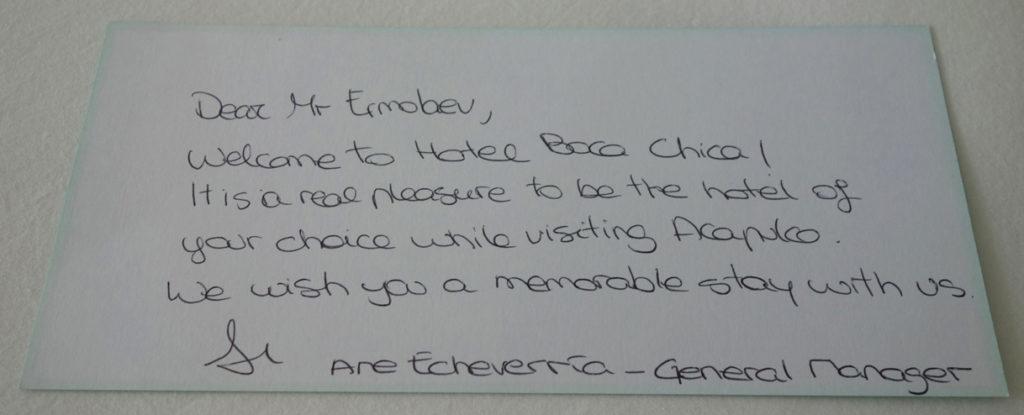 Dear Mr Ermobev,
Welcome to Hotel Boca Chica!
It is a real pleasure to be the hotel of
your choice while visiting Acapulco.
We wish you a memorable stay with us.
Ane Echeverría - General Manager